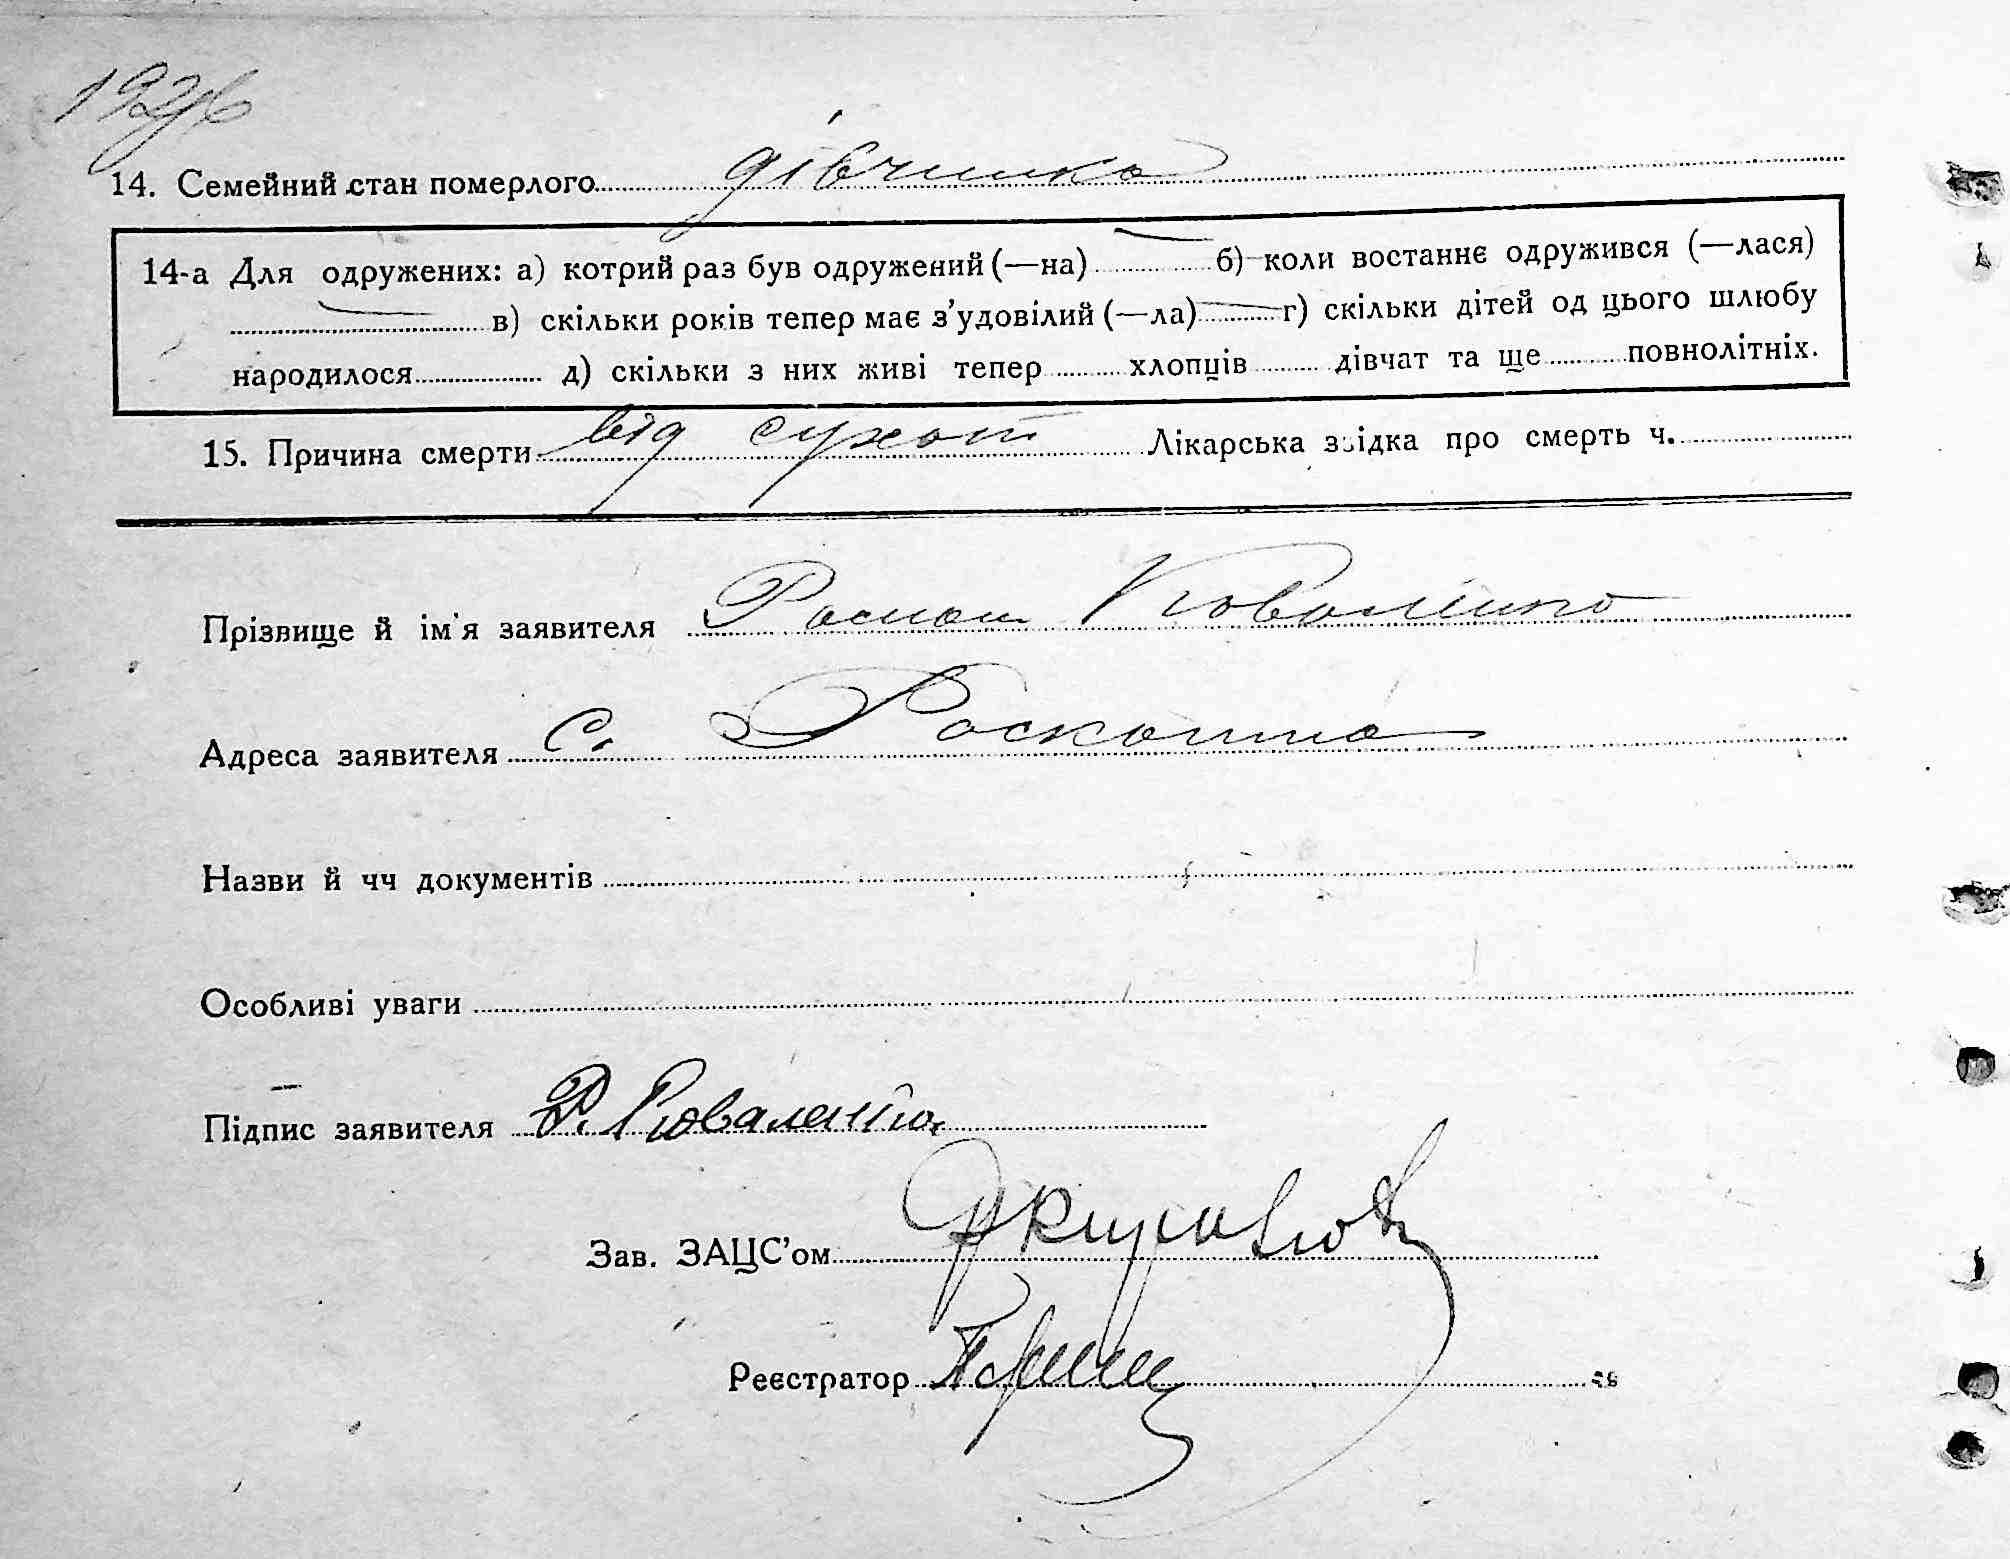 1926
14. Семейний стан померлого дівчинка
14-а Для одружених: а) котрий раз був одружений (—на) б) коли востаннє одружився (—лася)
в) скільки років тепер має з'удовілий (—ла) г) скільки дітей од цього шлюбу
народилося д) скільки з них живі тепер хлопців дівчат та ще повнолітніх.
15. Причина смерти від сухот Лікарська звідка про смерть ч.
Прізвище й ім'я заявителя Роман Коваленко
Адреса заявителя С. Роскошна
Назви й чч документів
Особливі уваги
Підпис заявителя Р. Коваленко
Зав. ЗАЦС'ом
Реєстратор